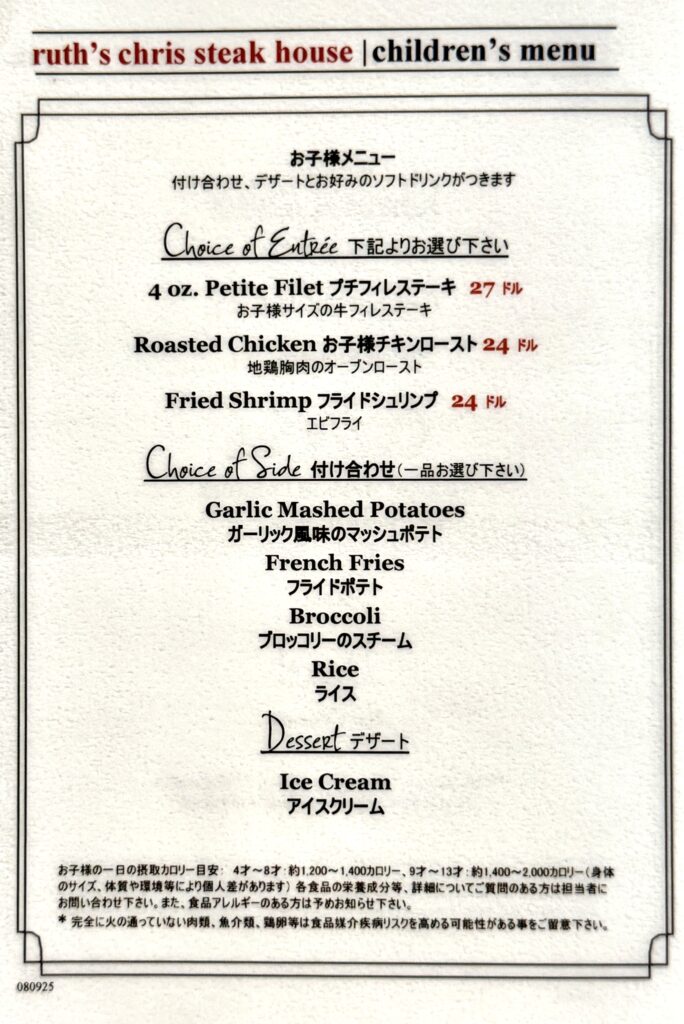 ruth's chris steak house | children's menu
お子様メニュー
付け合わせ、デザートとお好みのソフトドリンクがつきます
Choice of Entrée 下記よりお選び下さい
4 oz. Petite Filet プチフィレステーキ 27 ドル
お子様サイズの牛フィレステーキ
Roasted Chicken お子様チキンロースト 24 ドル
地鶏胸肉のオーブンロースト
Fried Shrimp フライドシュリンプ 24 ドル
エビフライ
Choice of Side 付け合わせ（一品お選び下さい）
Garlic Mashed Potatoes
ガーリック風味のマッシュポテト
French Fries
フライドポテト
Broccoli
ブロッコリーのスチーム
Rice
ライス
Dessert デザート
Ice Cream
アイスクリーム
お子様の一日の摂取カロリー目安： 4才～8才：約1,200～1,400カロリー、9才～13才：約1,400～2,000カロリー（身体
のサイズ、体質や環境等により個人差があります） 各食品の栄養成分等、詳細についてご質問のある方は担当者に
お問い合わせ下さい。また、食品アレルギーのある方は予めお知らせ下さい。
* 完全に火の通っていない肉類、魚介類、鶏卵等は食品媒介疾病リスクを高める可能性がある事をご留意下さい。
080925